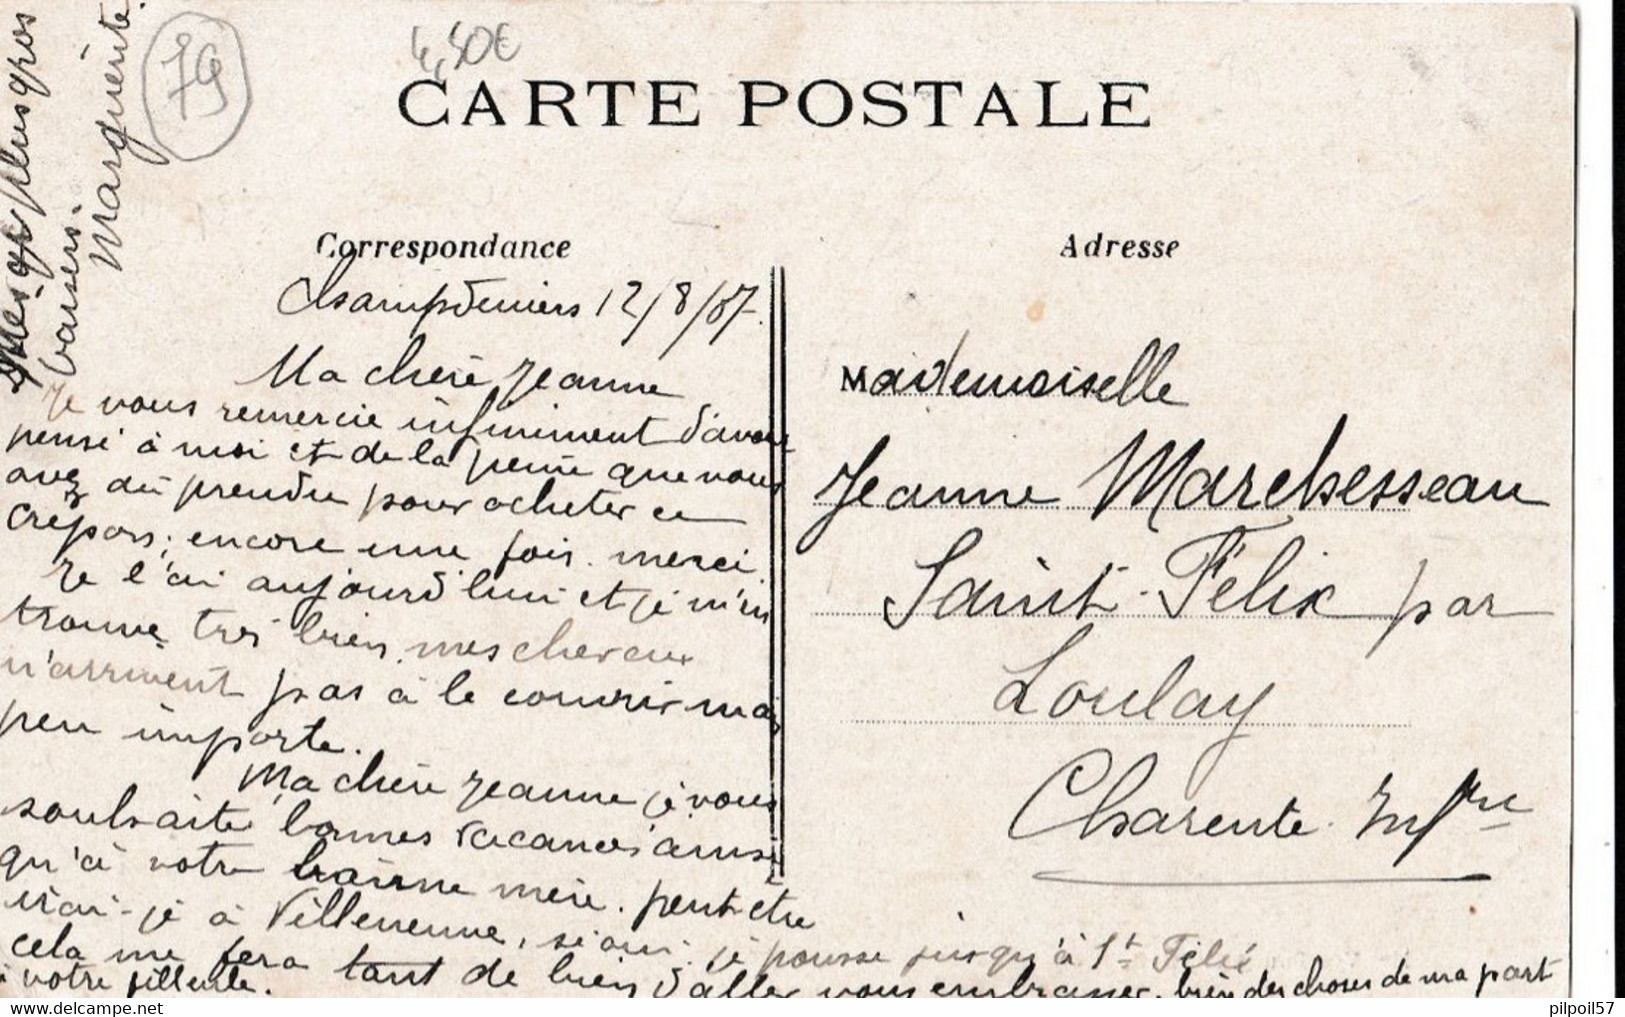 79
4,50€
CARTE POSTALE
Correspondance
Adresse
Champdeniers 12/8/07.
Ma chère Jeanne
Je vous remercie infiniment d'avoir
pensé à moi et de la peine que vous
avez dû prendre pour acheter ce
crépon; encore une fois merci.
Je l'ai aujourd'hui et je m'en
trouve très bien, mes cheveux
n'arrivent pas à le couvrir mais
peu importe.
Ma chère Jeanne je vous
souhaite bonnes vacances ainsi
qu'à votre bonne mère. peut-être
irai-je à Villeneuve, si oui je pousse jusqu'à St Félix
cela me fera tant de bien d'aller vous embrasser, bien des choses de ma part
à votre fillette.
Mes plus gros
baisers.
Marguerite.
Mademoiselle
Jeanne Marchesseau
Saint-Félix par
Loulay
Charente Infre
pilpoil57